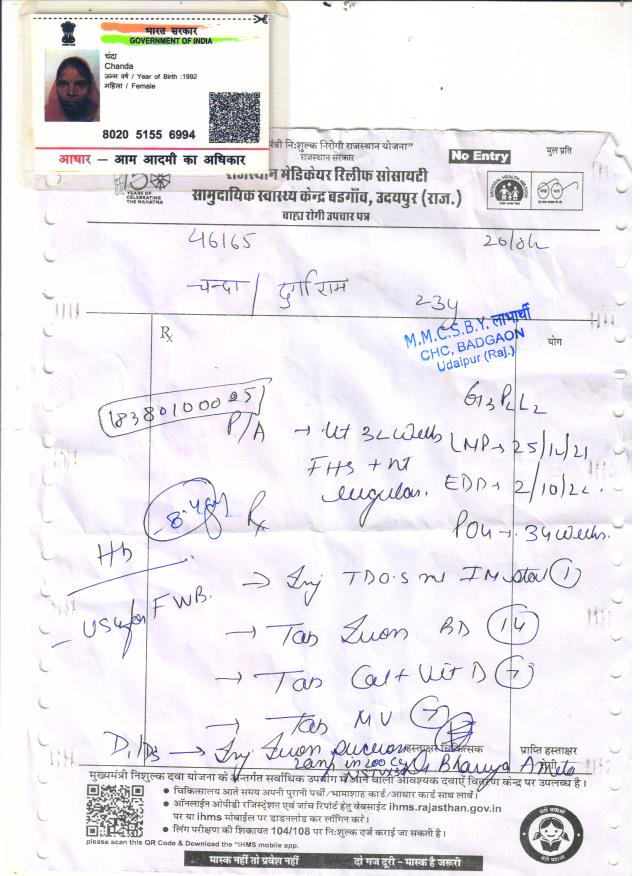 भारत सरकार
GOVERNMENT OF INDIA
चंदा
Chanda
जन्म वर्ष / Year of Birth :1992
महिला / Female
8020 5155 6994
आधार – आम आदमी का अधिकार
मंत्री निःशुल्क निरोगी राजस्थान योजना"
राजस्थान सरकार
No Entry
मुल प्रति
राजस्थान मेडिकेयर रिलीफ सोसायटी
सामुदायिक स्वास्थ्य केन्द्र बडगाँव, उदयपुर (राज.)
बाह्य रोगी उपचार पत्र
YEARS OF
CELEBRATING
THE MAHATMA
46165
चन्दा / दुर्गाराम
23y
M.M.C.S.B.Y. लाभार्थी
CHC, BADGAON
Udaipur (Raj.)
Rx
योग
G3P2L2
P/A → Ut 32 weeks
LMP → 25/12/21
FHS +nt
regular.
EDD → 2/10/22.
POG → 34 weeks.
8.4gm
Rx
Hb
USG for FWB.
→ Inj TD 0.5 ml IM stat (1)
→ Tab Iron BD (14)
→ Tab Cal + Vit D
→ Tab MV
→ Inj Iron sucrose
2 amp in 200 cc
हस्ताक्षर चिकित्सक
प्राप्ति हस्ताक्षर
मुख्यमंत्री निशुल्क दवा योजना के अन्तर्गत सर्वाधिक उपयोग में आने वाली आवश्यक दवायाँ वितरण केन्द्र पर उपलब्ध है।
• चिकित्सालय आते समय अपनी पुरानी पर्ची/भामाशाह कार्ड/आधार कार्ड साथ लावें।
• ऑनलाईन ओपीडी रजिस्ट्रेशन एवं जांच रिपोर्ट हेतु वेबसाईट ihms.rajasthan.gov.in
पर या ihms मोबाईल पर डाउनलोड कर लॉगिन करें।
• लिंग परीक्षण की शिकायत 104/108 पर निःशुल्क दर्ज कराई जा सकती है।
please scan this QR Code & Download the "IHMS mobile app.
मास्क नहीं तो प्रवेश नहीं
दो गज दूरी – मास्क है जरूरी